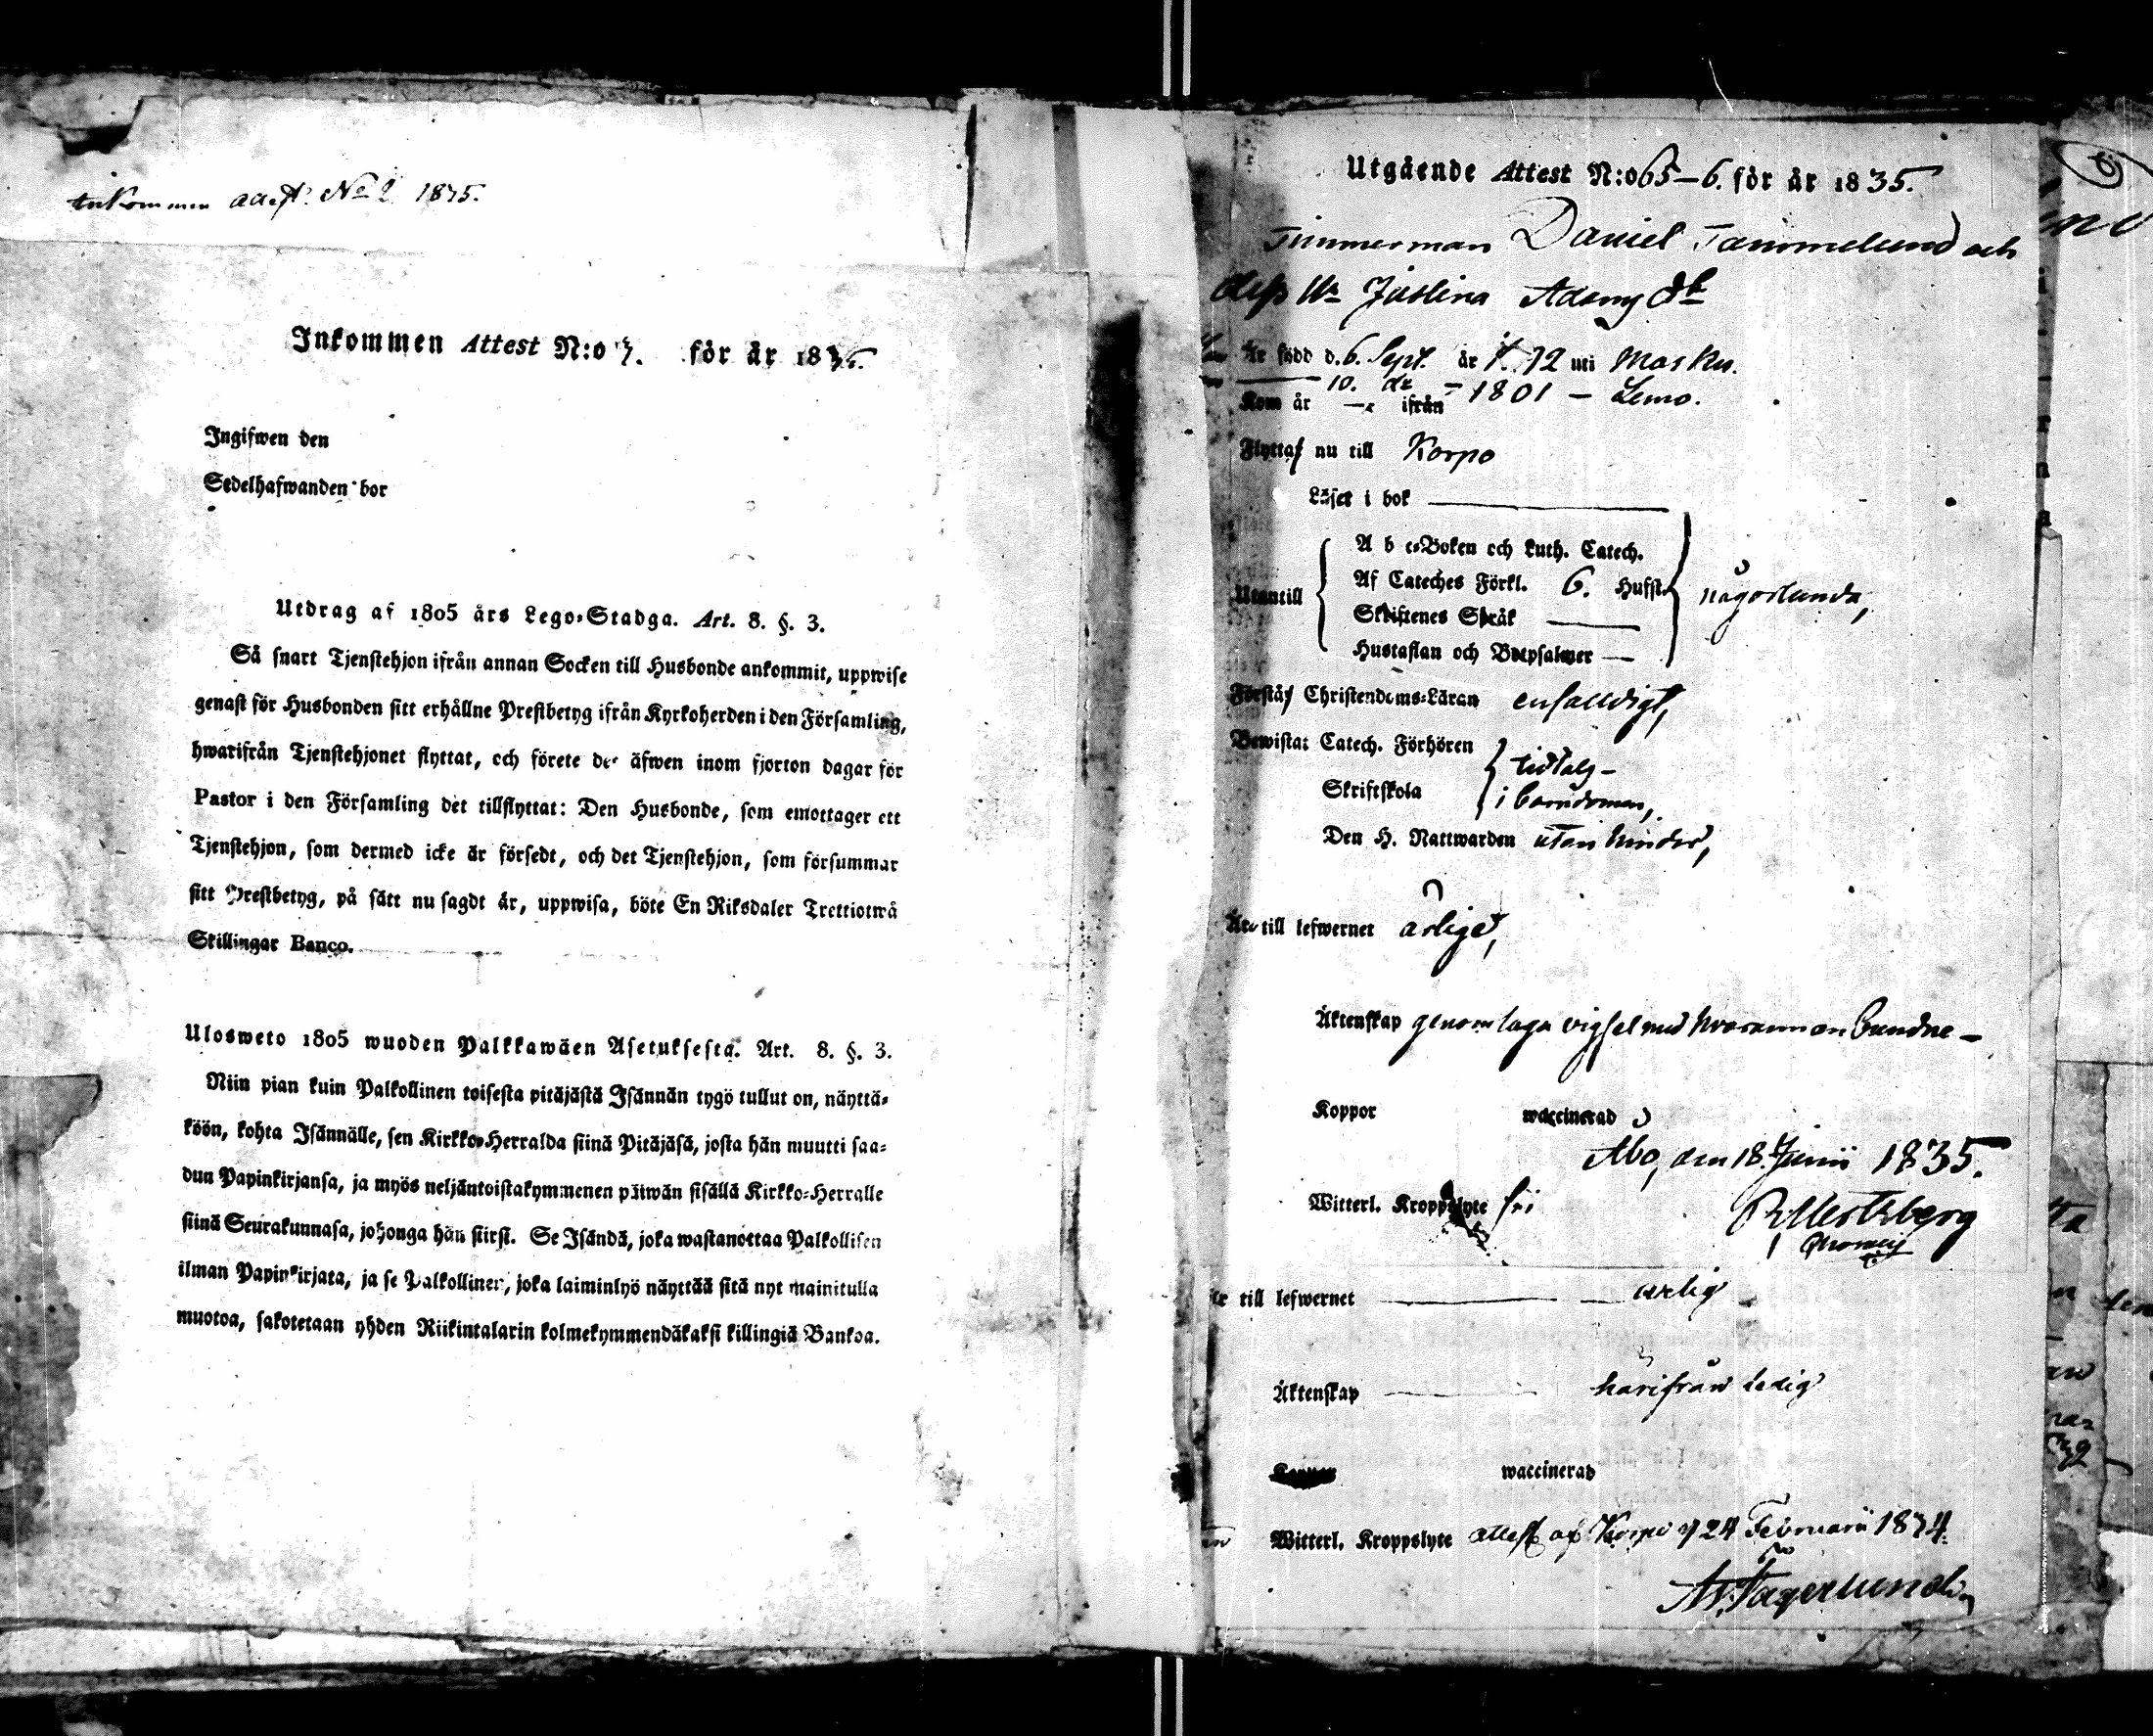 Inkommen attest No 2 1835.
Inkommen Attest N:o 7. för år 1835.
Ingifwen den
Sedelhafwanden bor
Utdrag af 1805 års Lego-Stadga. Art. 8. §. 3.
Så snart Tjenstehjon ifrån annan Socken till Husbonde ankommit, uppwise
genast för Husbonden sitt erhållne Prestbetyg ifrån Kyrkoherden i den Församling,
hwarifrån Tjenstehjonet flyttat, och förete det äfwen inom fjorton dagar för
Pastor i den Församling det tillflyttat: Den Husbonde, som emottager ett
Tjenstehjon, som dermed icke är försedt, och det Tjenstehjon, som försummar
sitt Prestbetyg, på sätt nu sagdt är, uppwisa, böte En Riksdaler Trettiotwå
Skillingar Banco.
Ulosweto 1805 wuoden Palkkawäen Asetuksesta. Art. 8. §. 3.
Niin pian kuin Palkollinen toisesta pitäjästä Isännän tygö tullut on, näyttä-
köön, kohta Isännälle, sen Kirkko-Herralda siinä Pitäjäsä, josta hän muutti saa-
dun Papinkirjansa, ja myös neljäntoistakymmenen päiwän sisällä Kirkko-Herralle
siinä Seurakunnasa, johonga hän siirsi. Se Isändä, joka wastanottaa Palkollisen
ilman Papinkirjata, ja se Palkollinen, joka laiminlyö näyttää sitä nyt mainitulla
muotoa, sakotetaan yhden Riikintalarin kolmekymmendäkaksi killingiä Bankoa.
Utgående Attest N:o 65-6. för år 1835.
Timmerman Daniel Tammelund och
dess Hu Justina Adamsdr
Är född d. 6 Sept. år 72 uti Masku.
10. dr - 1801 - Lemo.
Kom år ifrån
Flyttaf nu till Korpo
Läset i bok
A b c-Boken och Luth. Catech.
Utantill Af Cateches Förkl. 6. Hufst. någorlunda,
Skriftenes Språk
Hustaflan och Botpsalmer
Förståf Christendoms-Läran enfalldigt,
Bewistat Catech. Förhören tidtals -
Skriftskola i barndomen,
Den H. Nattwarden utan hinder,
Äro till lefwernet ärliga,
Äktenskap genom laga vigsel med hvarannan bundne -
Koppor waccinerad
Åbo, den 18. Junii 1835.
Witterl. Kroppslyte fri
till lefwernet ärlig
Äktenskap härifrån ledig
Koppor waccinerad
Witterl. Kroppslyte attest af Korpo d 24 Februarii 1834.
Fagerlund